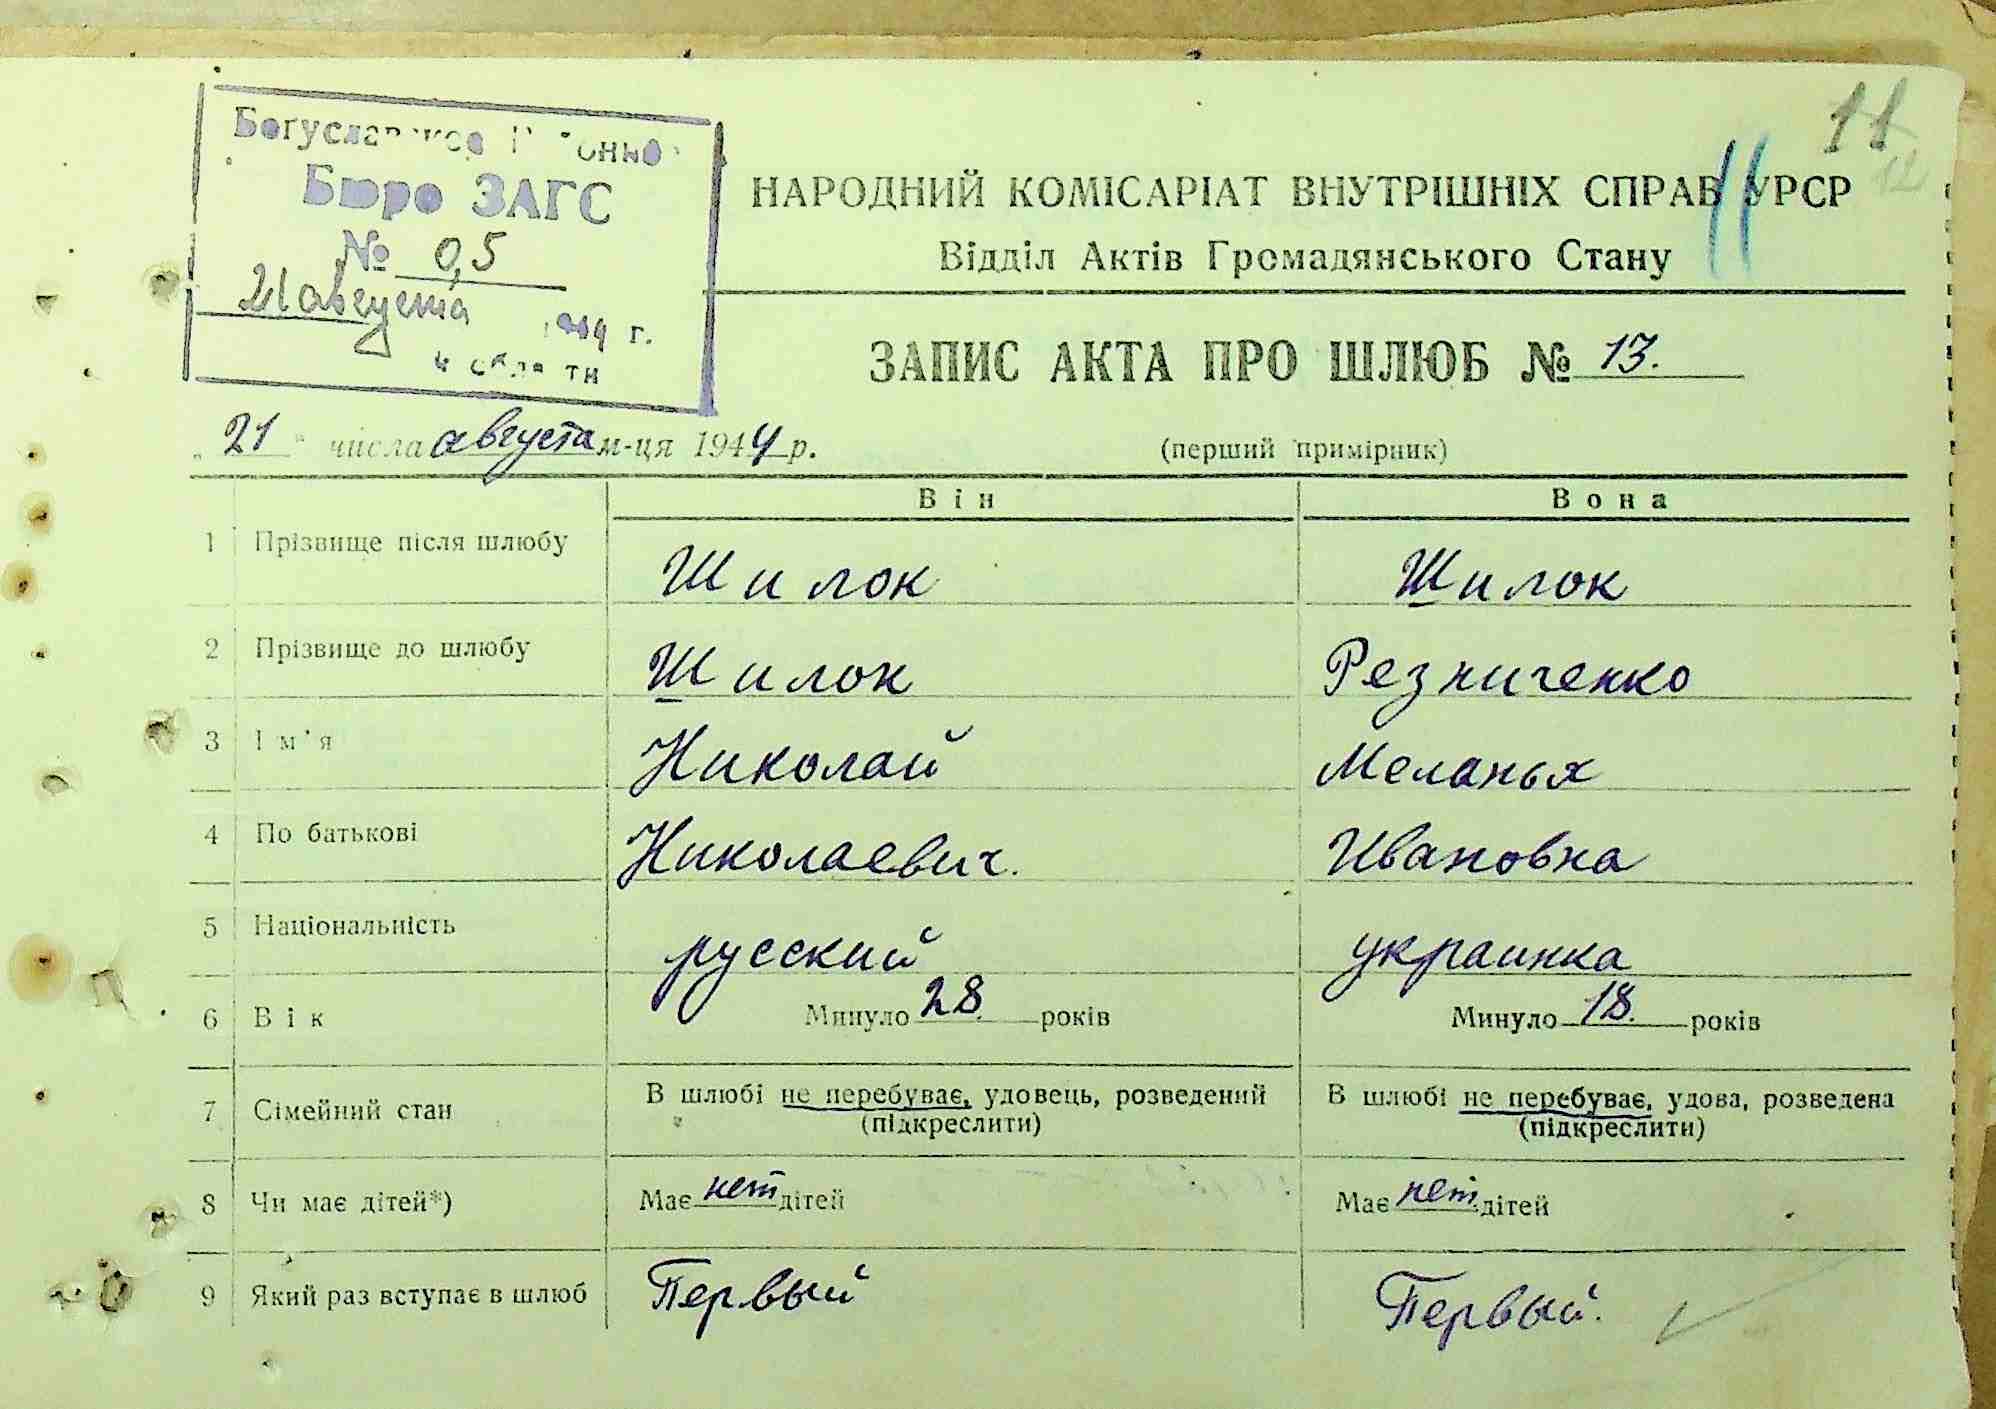 11
12
Бюро ЗАГС
№ 05
21 августа 1944 г.
НАРОДНИЙ КОМІСАРІАТ ВНУТРІШНІХ СПРАВ УРСР
11
Відділ Актів Громадянського Стану
ЗАПИС АКТА ПРО ШЛЮБ № 13.
„21" числа августа м-ця 1944 р.
(перший примірник)
Він Вона
1 Прізвище після шлюбу Шилок Шилок
2 Прізвище до шлюбу Шилок Резниченко
3 Ім'я Николай Меланья
4 По батькові Николаевич. Ивановна
5 Національність русский украинка
6 Вік Минуло 28. років Минуло 18. років
7 Сімейний стан В шлюбі не перебуває, удовець, розведений (підкреслити) В шлюбі не перебуває, удова, розведена (підкреслити)
8 Чи має дітей*) Має нет дітей Має нет дітей
9 Який раз вступає в шлюб Первый Первый.